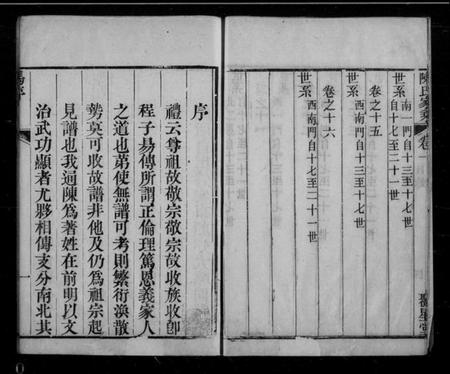 陳氏家乘 卷一
世系 南一門自十三至十七世
自十七至二十一世
卷之十五
世系 西南門自十三至十七世
卷之十六
世系 西南門自十七至二十一世
序
禮云尊祖故敬宗敬宗故收族收卽
程子易傳所謂正倫理篤恩義家人
之道也第使無譜可考則繁衍渙散
勢莫可收故譜非他及仍爲祖宗起
見譜也我邑陳爲著姓在前明以文
治武功顯者尤夥相傳支分南北其
序
一